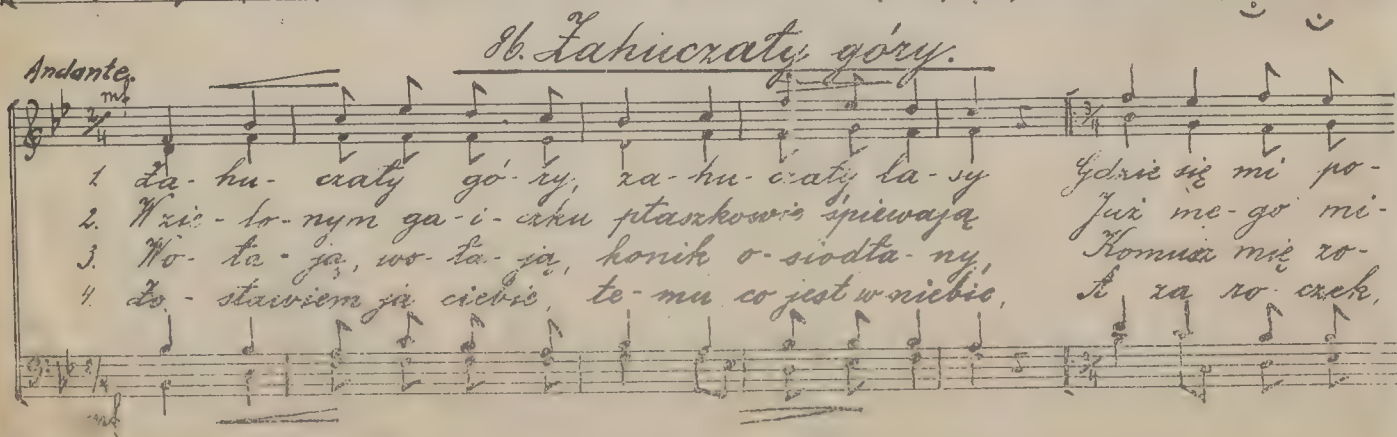 86. Zahuczały góry.
Andante.
mf
2/4
3/4
1. Za-hu-czały gó-ry, za-hu-czały la-sy Gdzie się mi po-
2. W zie-lo-nym ga-i-czku ptaszkowie śpiewają Już me-go mi-
3. Wo-ła-ją, wo-ła-ją, konik o-siodła-ny, Komuż mię zo-
4. Zo-stawiem ja ciebie, te-mu co jest w niebie, A za ro-czek,
2/4
3/4
mf